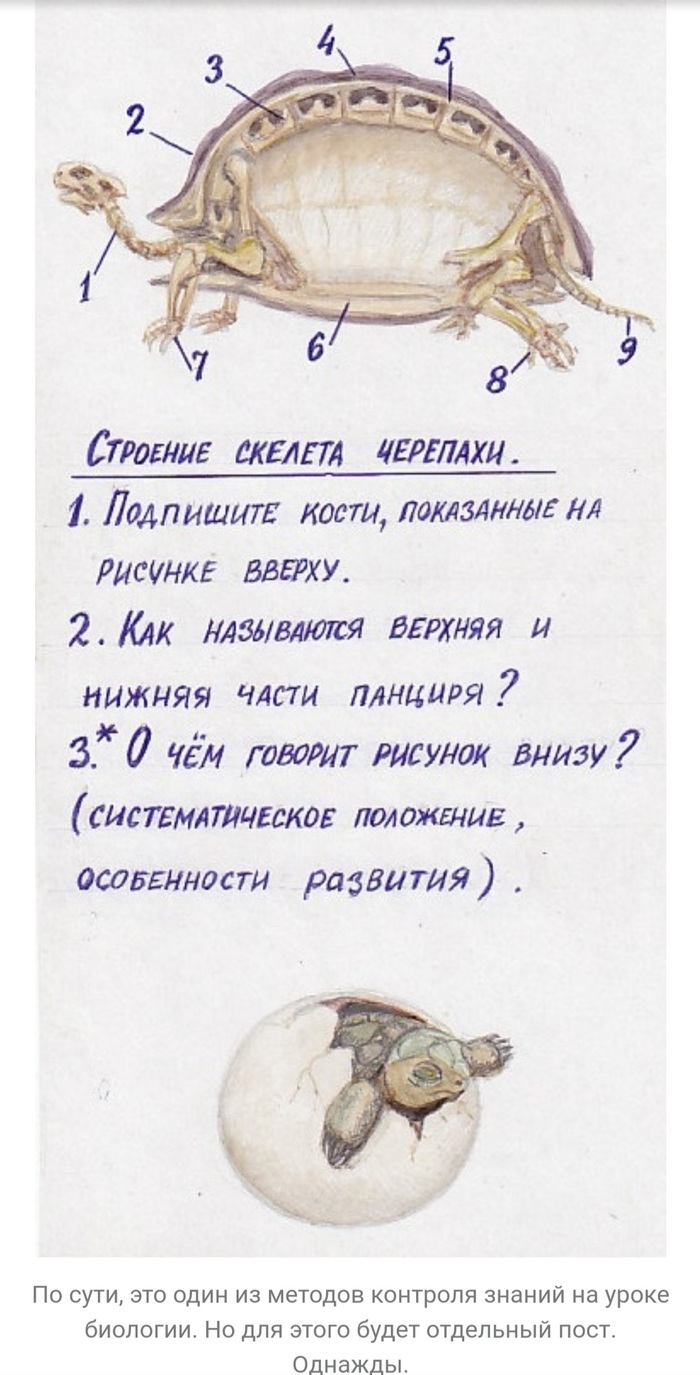 4
5
3
2
1
6
7
8
9
Строение скелета черепахи.
1. Подпишите кости, показанные на
рисунке вверху.
2. Как называются верхняя и
нижняя части панциря?
3.* О чём говорит рисунок внизу?
(систематическое положение,
особенности развития).
По сути, это один из методов контроля знаний на уроке
биологии. Но для этого будет отдельный пост.
Однажды.